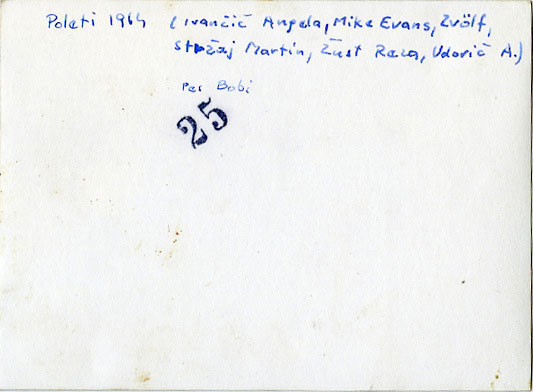 Poleti 1964 (Ivančič Angela, Mike Evans, Zvölf,
Stržaj Martin, Žust Reza, Udovič A.)
Pes Bobi
25